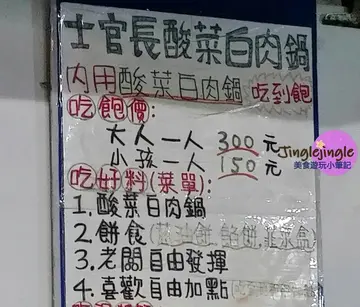 士官長酸菜白肉鍋
內用酸菜白肉鍋 吃到飽
吃飽價:
大人一人 300元
小孩一人 150元
吃好料(菜單):
1.酸菜白肉鍋
2.餅食(蔥油餅.餡餅.韭菜盒)
3.老闆自由發揮
4.喜歡自由加點
Jinglejingle
美食遊玩小筆記